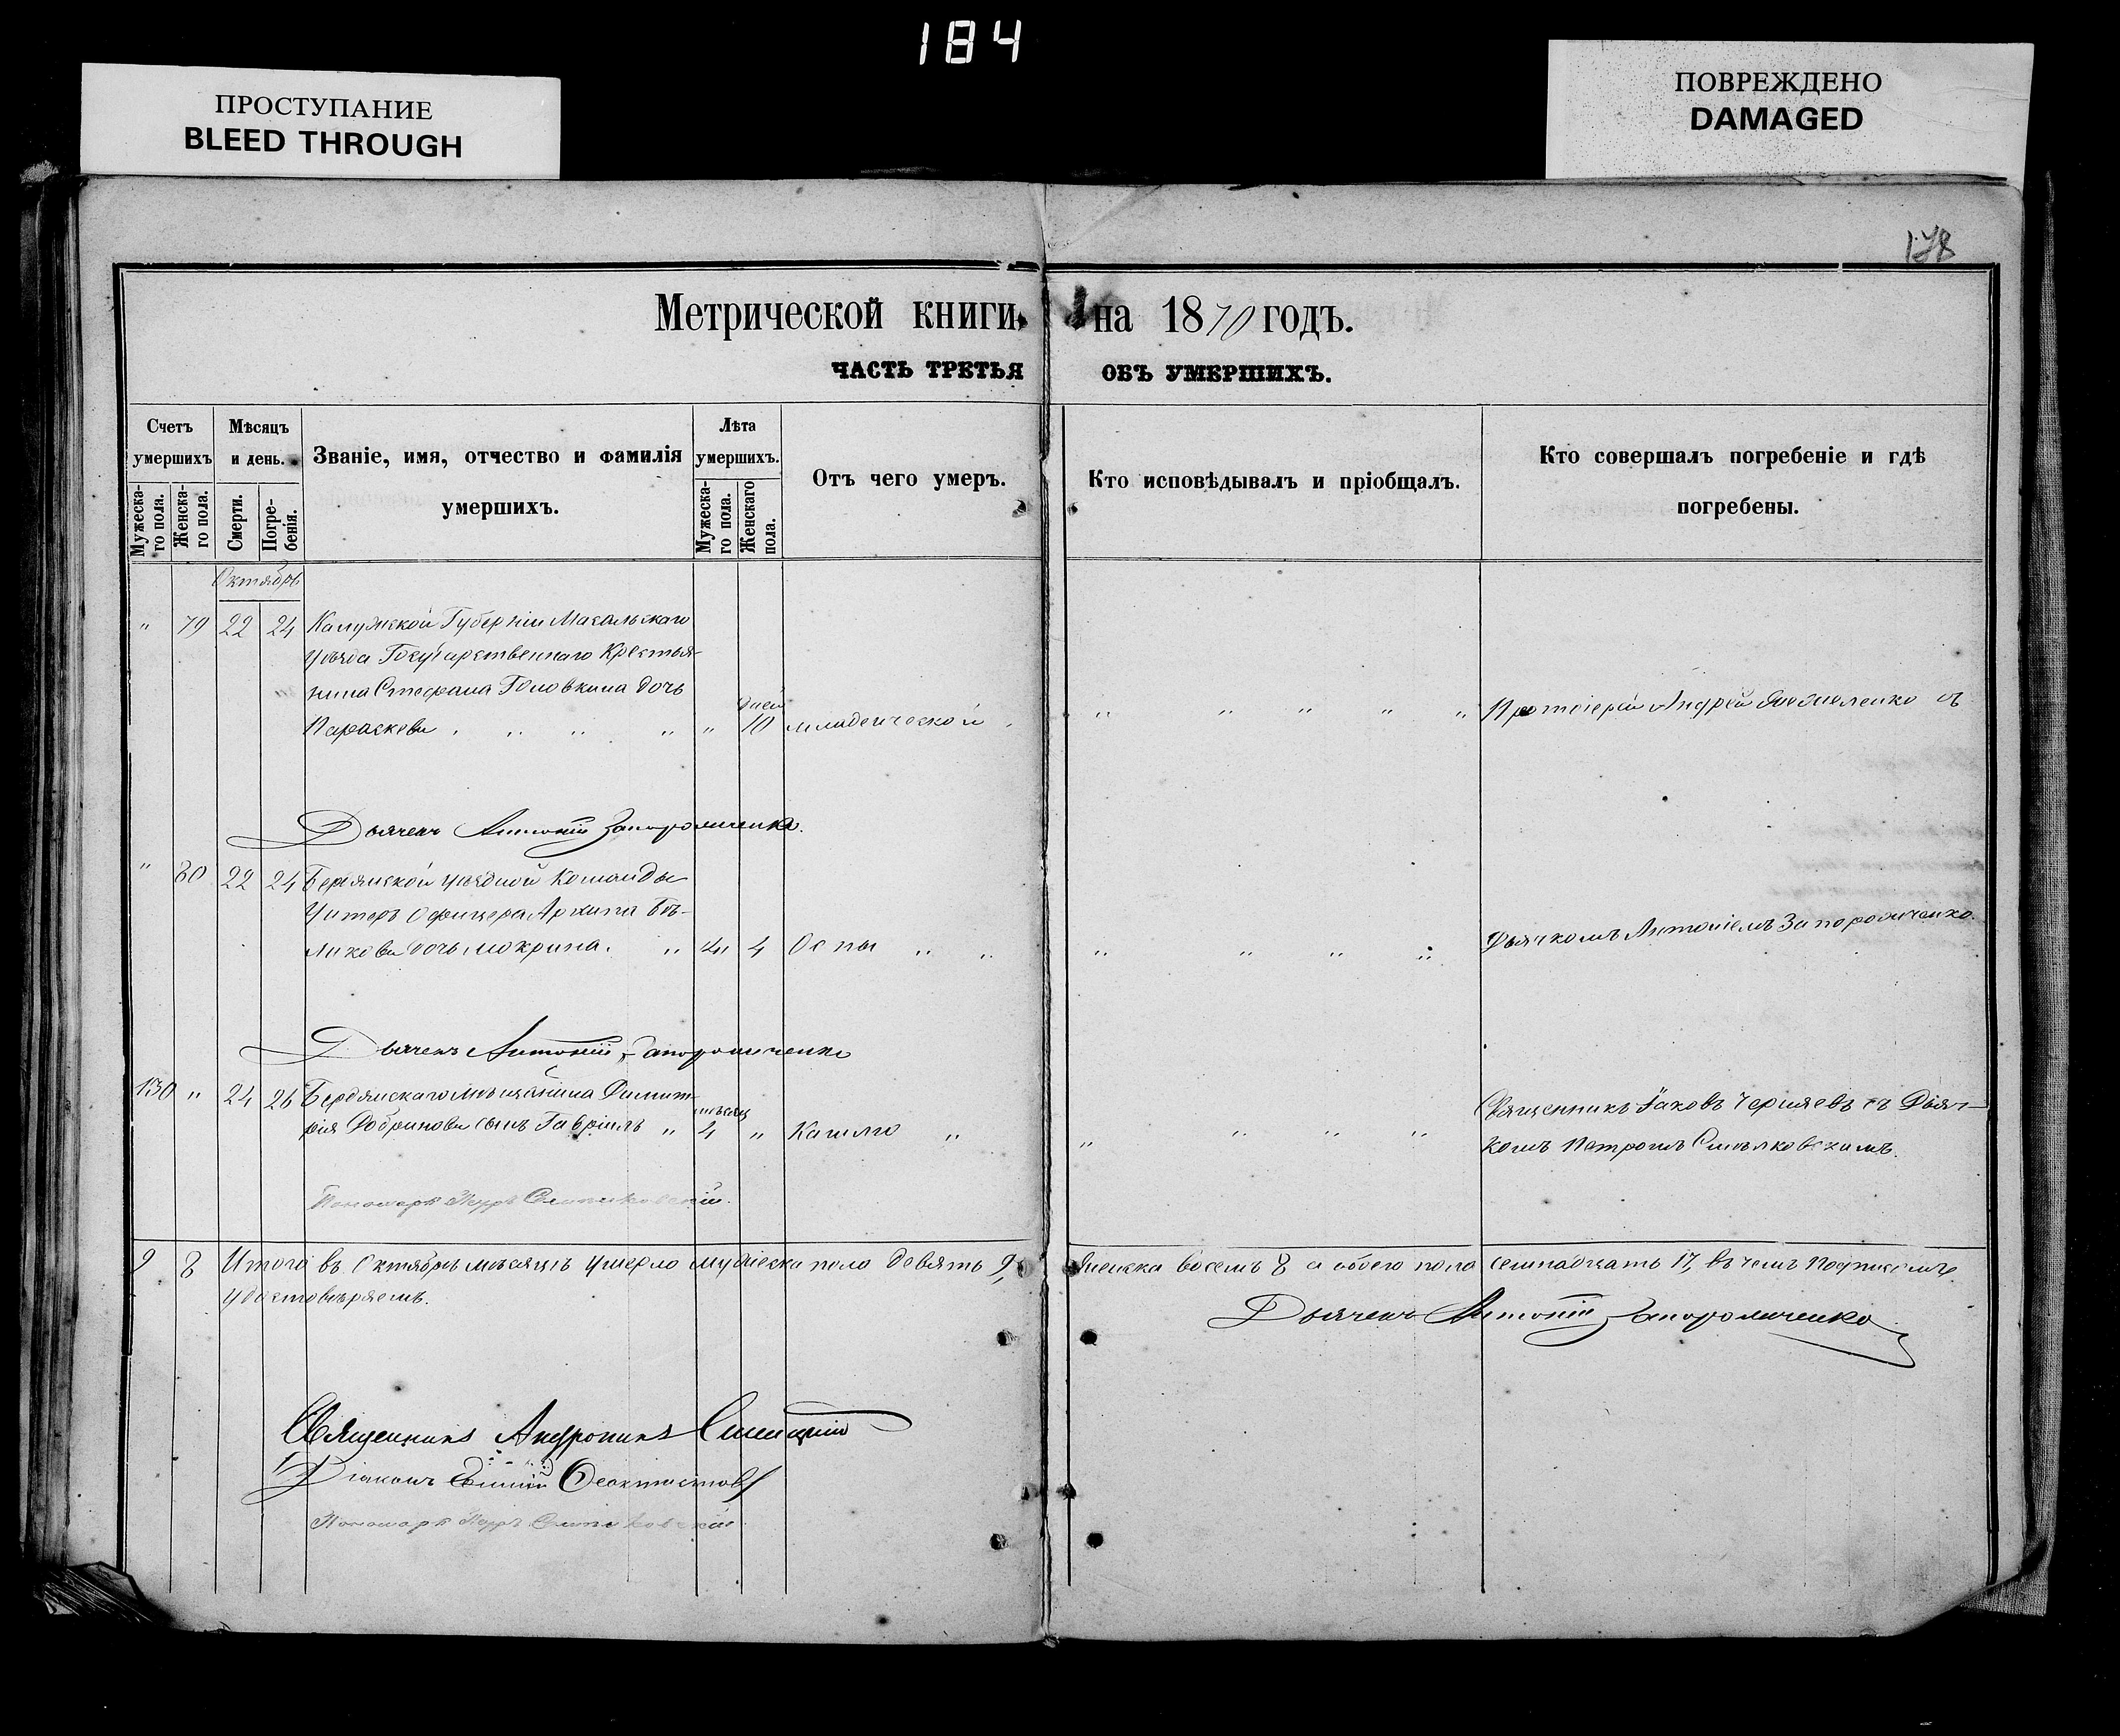 184
ПРОСТУПАНИЕ
BLEED THROUGH
ПОВРЕЖДЕНО
DAMAGED
178
Метрической книги на 1870 годъ.
ЧАСТЬ ТРЕТЬЯ ОБЪ УМЕРШИХЪ.
Счетъ умершихъ
Мужеска-го пола.
Женска-го пола.
Мѣсяцъ и день.
Смерти.
Погре-бенія.
Званіе, имя, отчество и фамилія умершихъ.
Лѣта умершихъ.
Мужеска-го пола.
Женскаго пола.
Отъ чего умеръ.
Кто исповѣдывалъ и пріобщалъ.
Кто совершалъ погребеніе и гдѣ погребены.
Октябрь
" 79 22 24 Калужской Губерніи Масальскаго
Уѣзда Государственнаго Крестья-
нина Стефана Головкина дочь
Параскева " " дней 10 младенческой " " " " " Протоіерей Андрей съ
Дьячекъ Антоній Запорожченко.
" 80 22 24 Бердянской уѣздной Команды
Унтеръ Офицера Архипа Бѣ-
ликова дочь Мокрина. " 4 Оспы " " " " " " Дьячкомъ Антоніемъ Запорожченко.
Дьячекъ Антоній Запорожченко
130 " 24 26 Бердянскаго мѣщанина Димит-
рія Добринова сынъ Гавріилъ " мѣсяц 4 " Кашлю " " " " "
Священникъ Іаковъ Черняевъ съ Дьяч-
комъ Петромъ Смѣлковскимъ.
Пономарь Петръ
9 8 Итого въ Октябрѣ мѣсяцѣ умерло мужеска пола девять 9, женска восемь 8 а обоего пола семнадцать 17, въ чемъ подписомъ
удостовѣряемъ.
Дьячекъ Антоній Запорожченко
Священникъ Андроникъ
Діаконъ Феоктистовъ
Пономарь Петръ